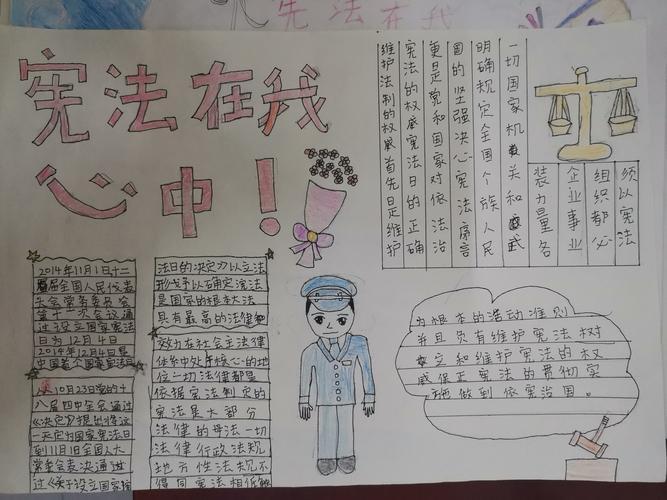 宪法在我
宪法在我
心中！
2014年11月1日十二
届全国人民代表
大会常务委员会
第十一次会议通
过设立国家宪法
日为 12月 4日
2014年12月4日是
中国首个国家宪法日
从10月23日党的十
八届四中全会通过
《决定》提出将这
一天定为国家宪法日
到11月1日全国人大
常委会表决通过
过《关于设立国家宪
法日的决定》以立法
形式予以确定宪法
是国家的根本大法
具有最高的法律
效力在社会主义法律
体系中处于核心的地
位一切法律都是
依据宪法制定的
宪法是大部分
法律的母法一切
法律行政法规
地方性法规不
得同宪法相抵触
维护法制的权威首先是维护
宪法的权威宪法日的正确
更是党和国家对依法治
国的坚强决心宪法序言
明确规定全国个族人民
一切国家机关和武
装力量各
企业事业
组织都必
须以宪法
为根本的活动准则
并且负有维护宪法树
立和维护宪法的权
威保正宪法的贯彻实
施做到依宪治国。